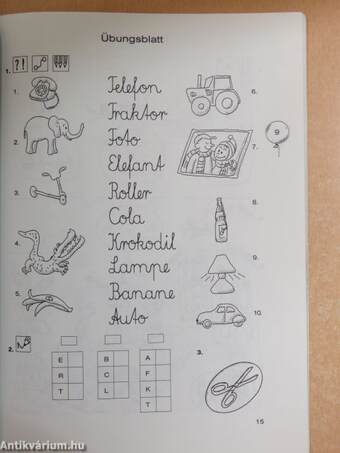 Übungsblatt
1. ?!
1.
Telefon
6.
Traktor
2.
Foto
7.
9
Elefant
3.
Roller
Cola
8.
4.
Krokodil
Lampe
9.
5.
Banane
Auto
10.
2.
3.
E B A
R C F
T L K
T
15
Antikvárium.hu
Antikvárium.hu